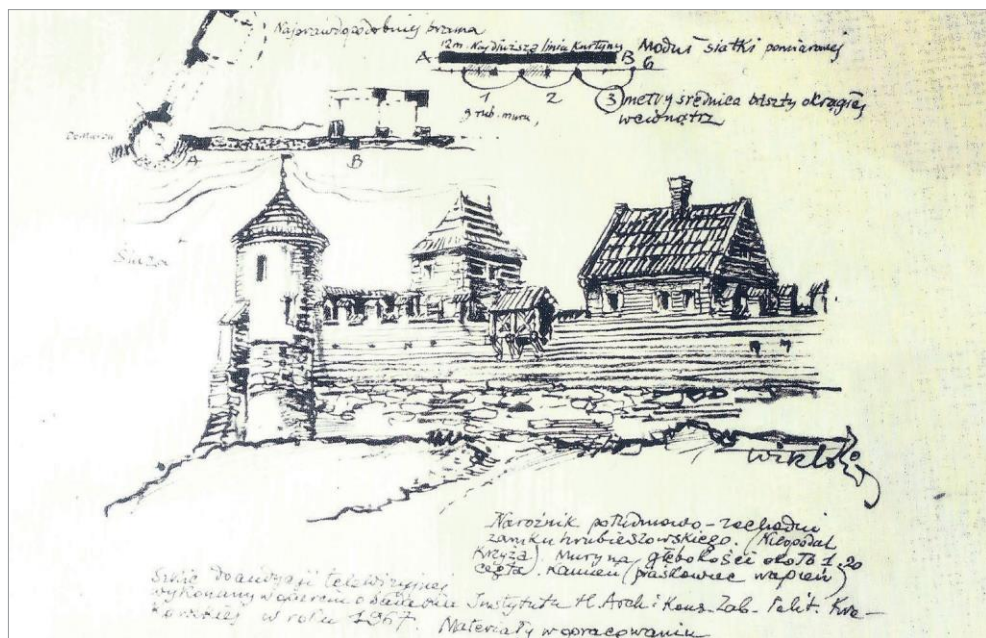 Najprawdopodobniej brama
12m. Najdłuższa linia kurtyny
A B Moduł siatki pomiarowej
6
1 2 3 metry średnica baszty okrągłej
grub. muru, wewnątrz
A B
wiklo
Narożnik południowo-zachodni
zamku hrubieszowskiego. (Niepodal
Krzyża). Mury na głębokości około 1,20
cegła. Kamień (piaskowiec wapień)
Szkic do audycji telewizyjnej
wykonany w oparciu o badania Instytutu H. Arch i Kons. Zab. Polit. Kra-
kowskiej w roku 1967. Materiały w opracowaniu